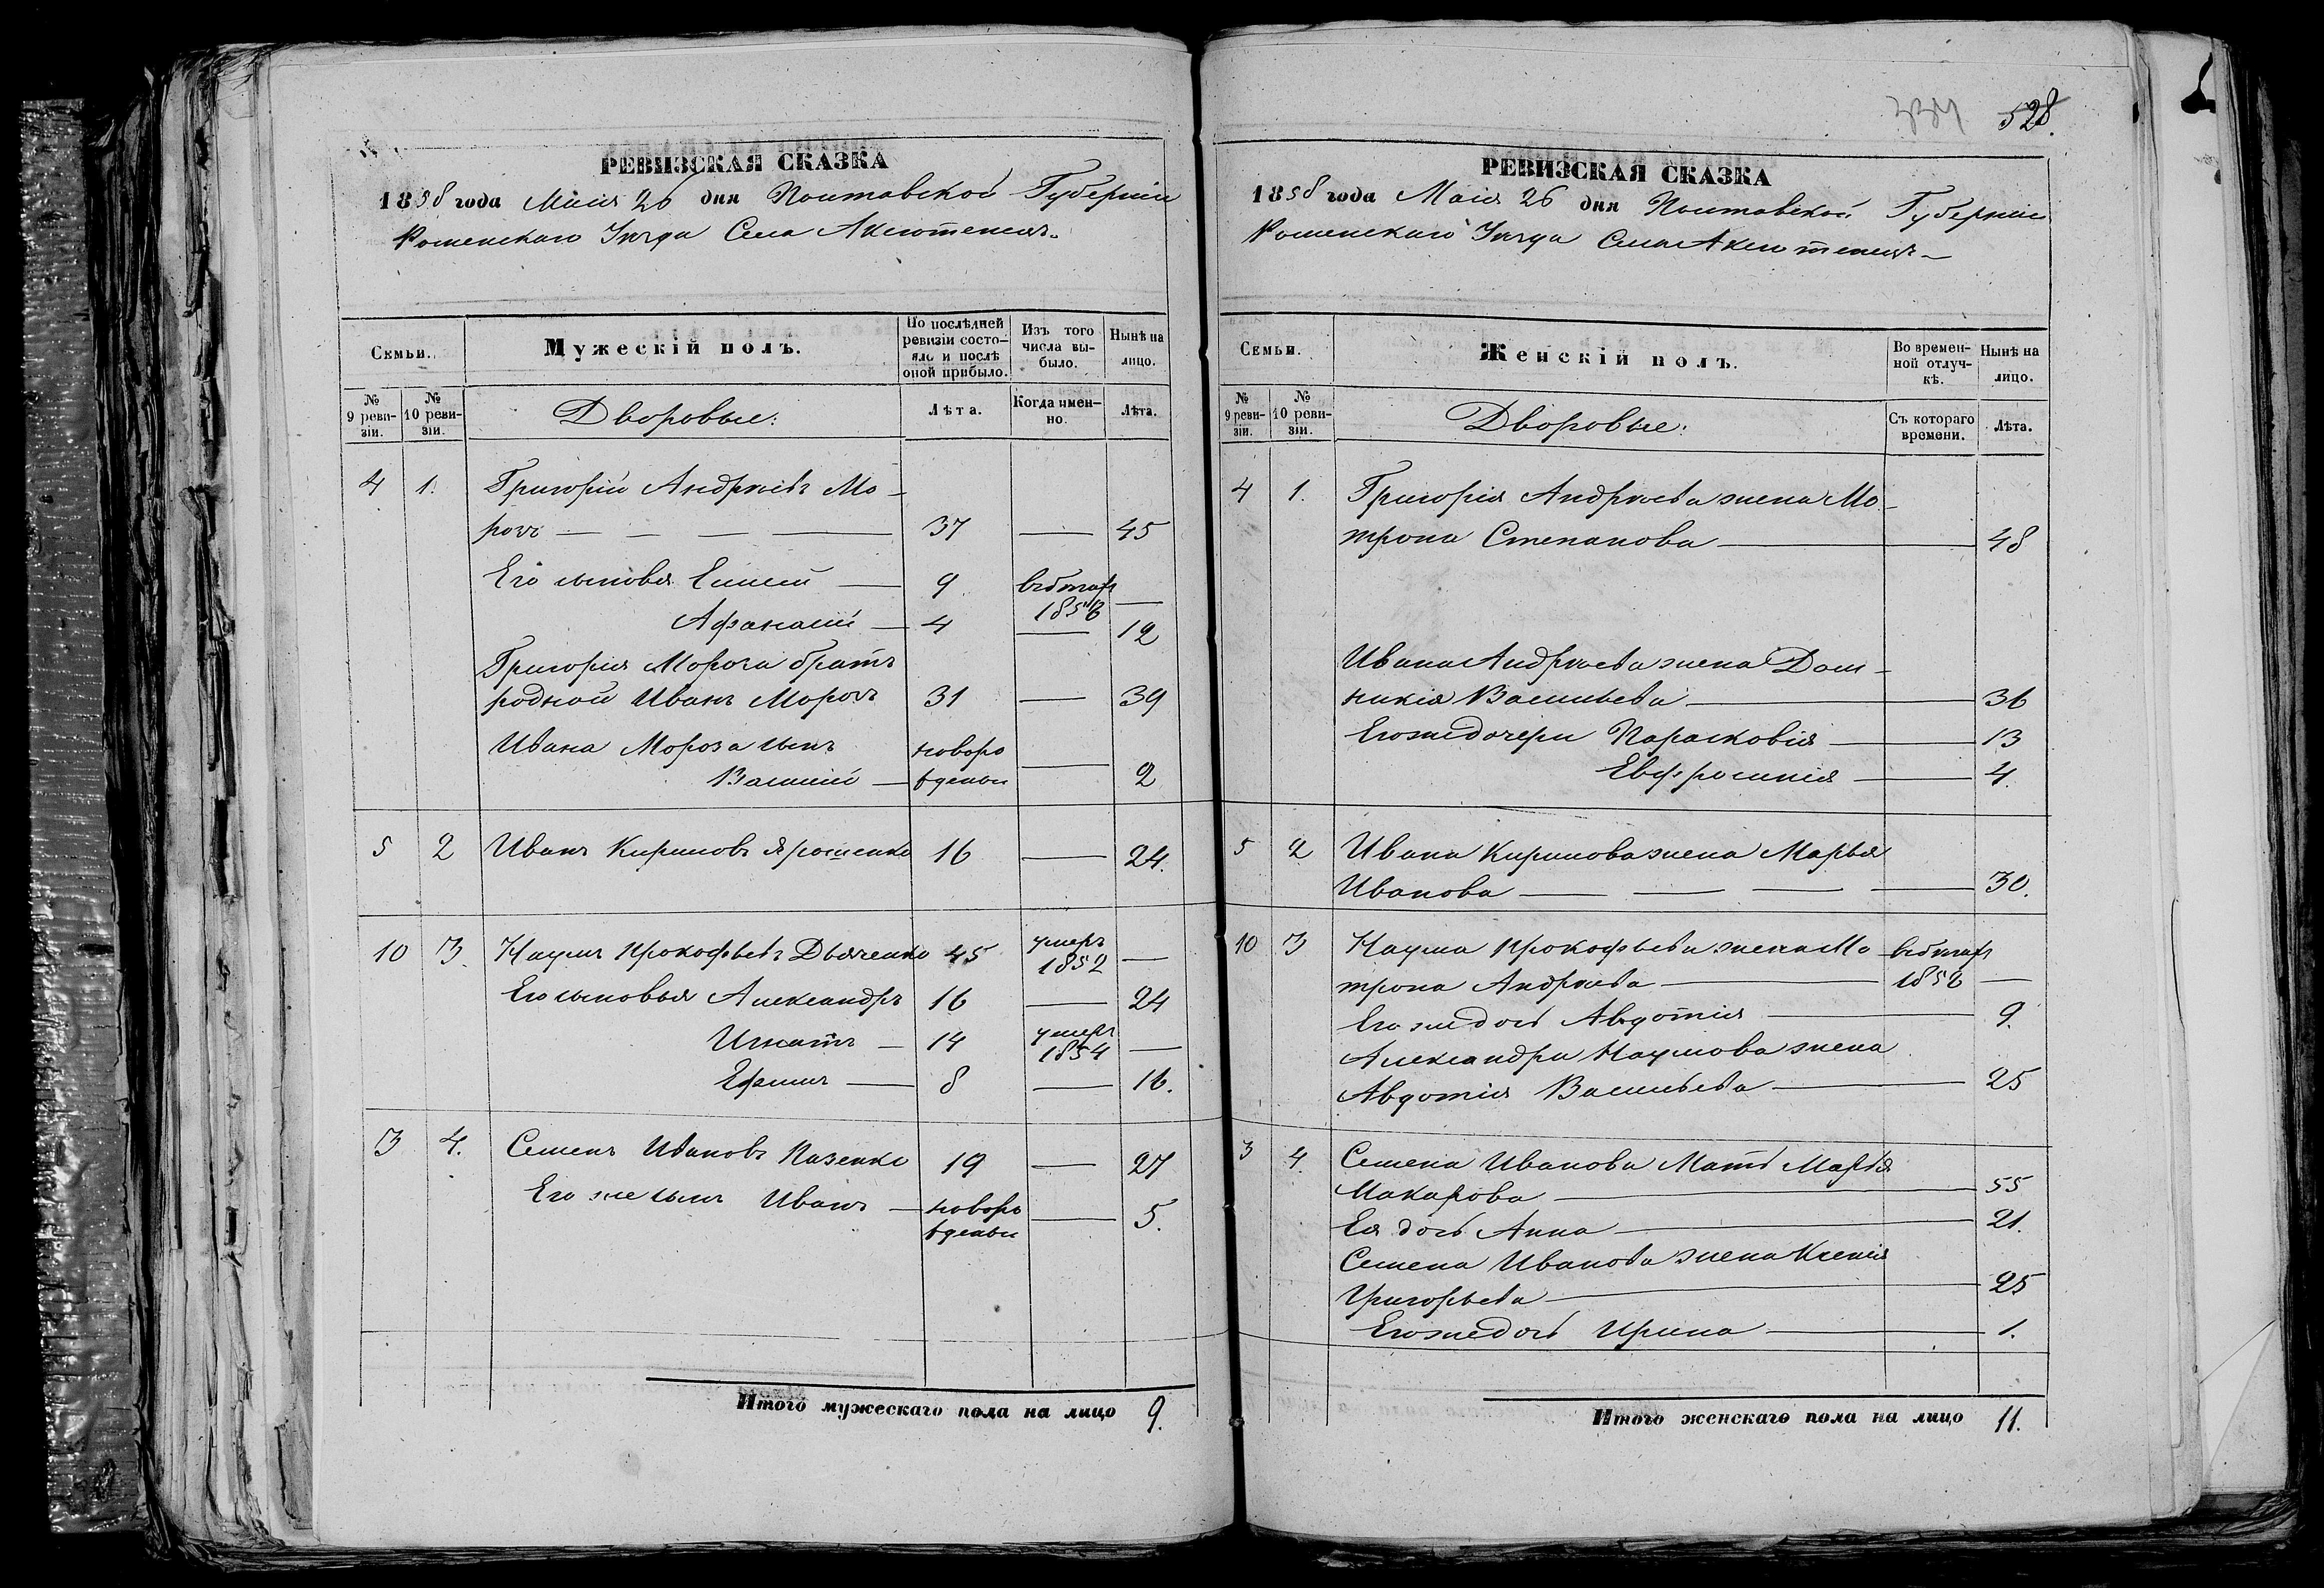 РЕВИЗСКАЯ СКАЗКА
1858 года Маія 26 дня Полтавской Губерніи
Роменскаго Уѣзда Села Аксютенецъ.
Семьи.
Мужескій полъ.
По послѣдней ревизіи состояло и послѣ оной прибыло.
Изъ того числа выбыло.
Нынѣ на лицо.
№ 9 ревизіи.
№ 10 ревизіи.
Дворовые:
Лѣта.
Когда именно.
Лѣта.
4 1. Григорій Андреевъ Мо-
розъ — — — — 37 — 45
Его сыновья Елисей — 9 въ бѣгах 1856 —
Афанасій — 4 — 12
Григорія Мороза братъ
родной Иванъ Морозъ 31 — 39
Ивана Мороза сынъ новоро
Василій — жденый — 2
5 2 Иванъ Кириловъ Ярошенко 16 — 24.
10 3. Наумъ Прокофьевъ Дьяченко 45 умеръ 1852 —
Его сыновья Александръ 16 — 24
Игнатъ — 14 умеръ 1854 —
Ефимъ — 8 — 16.
3 4. Семенъ Ивановъ Пазенко 19 — 27
Его же сынъ Иванъ — новоро — 5.
жденый
Итого мужескаго пола на лицо 9.
528.
РЕВИЗСКАЯ СКАЗКА
1858 года Маія 26 дня Полтавской Губерніи
Роменскаго Уѣзда Села Аксютенецъ —
Семьи.
Женскій полъ.
Во временной отлучкѣ.
Нынѣ на лицо.
№ 9 ревизіи.
№ 10 ревизіи.
Дворовые:
Съ котораго времени.
Лѣта.
4 1. Григорія Андреева жена Мо-
трона Степанова — 48
Ивана Андреева жена Дом-
никія Васильева — 36
Его же дочери Парасковія — 13
Евфросинія — 4.
5 2 Ивана Кирилова жена Марья
Иванова — — — — 30.
10 3 Наума Прокофьева жена Мо въ бѣгах
трона Андреева — 1856 —
Его же дочь Авдотія — 9.
Александра Наумова жена
Авдотія Васильева — 25
3 4. Семена Иванова Мать Марья
Макарова — 55
Ея дочь Анна — 21.
Семена Иванова жена Ксенія
Григорьева — 25
Его же дочь Ирина — 1.
Итого женскаго пола на лицо 11.